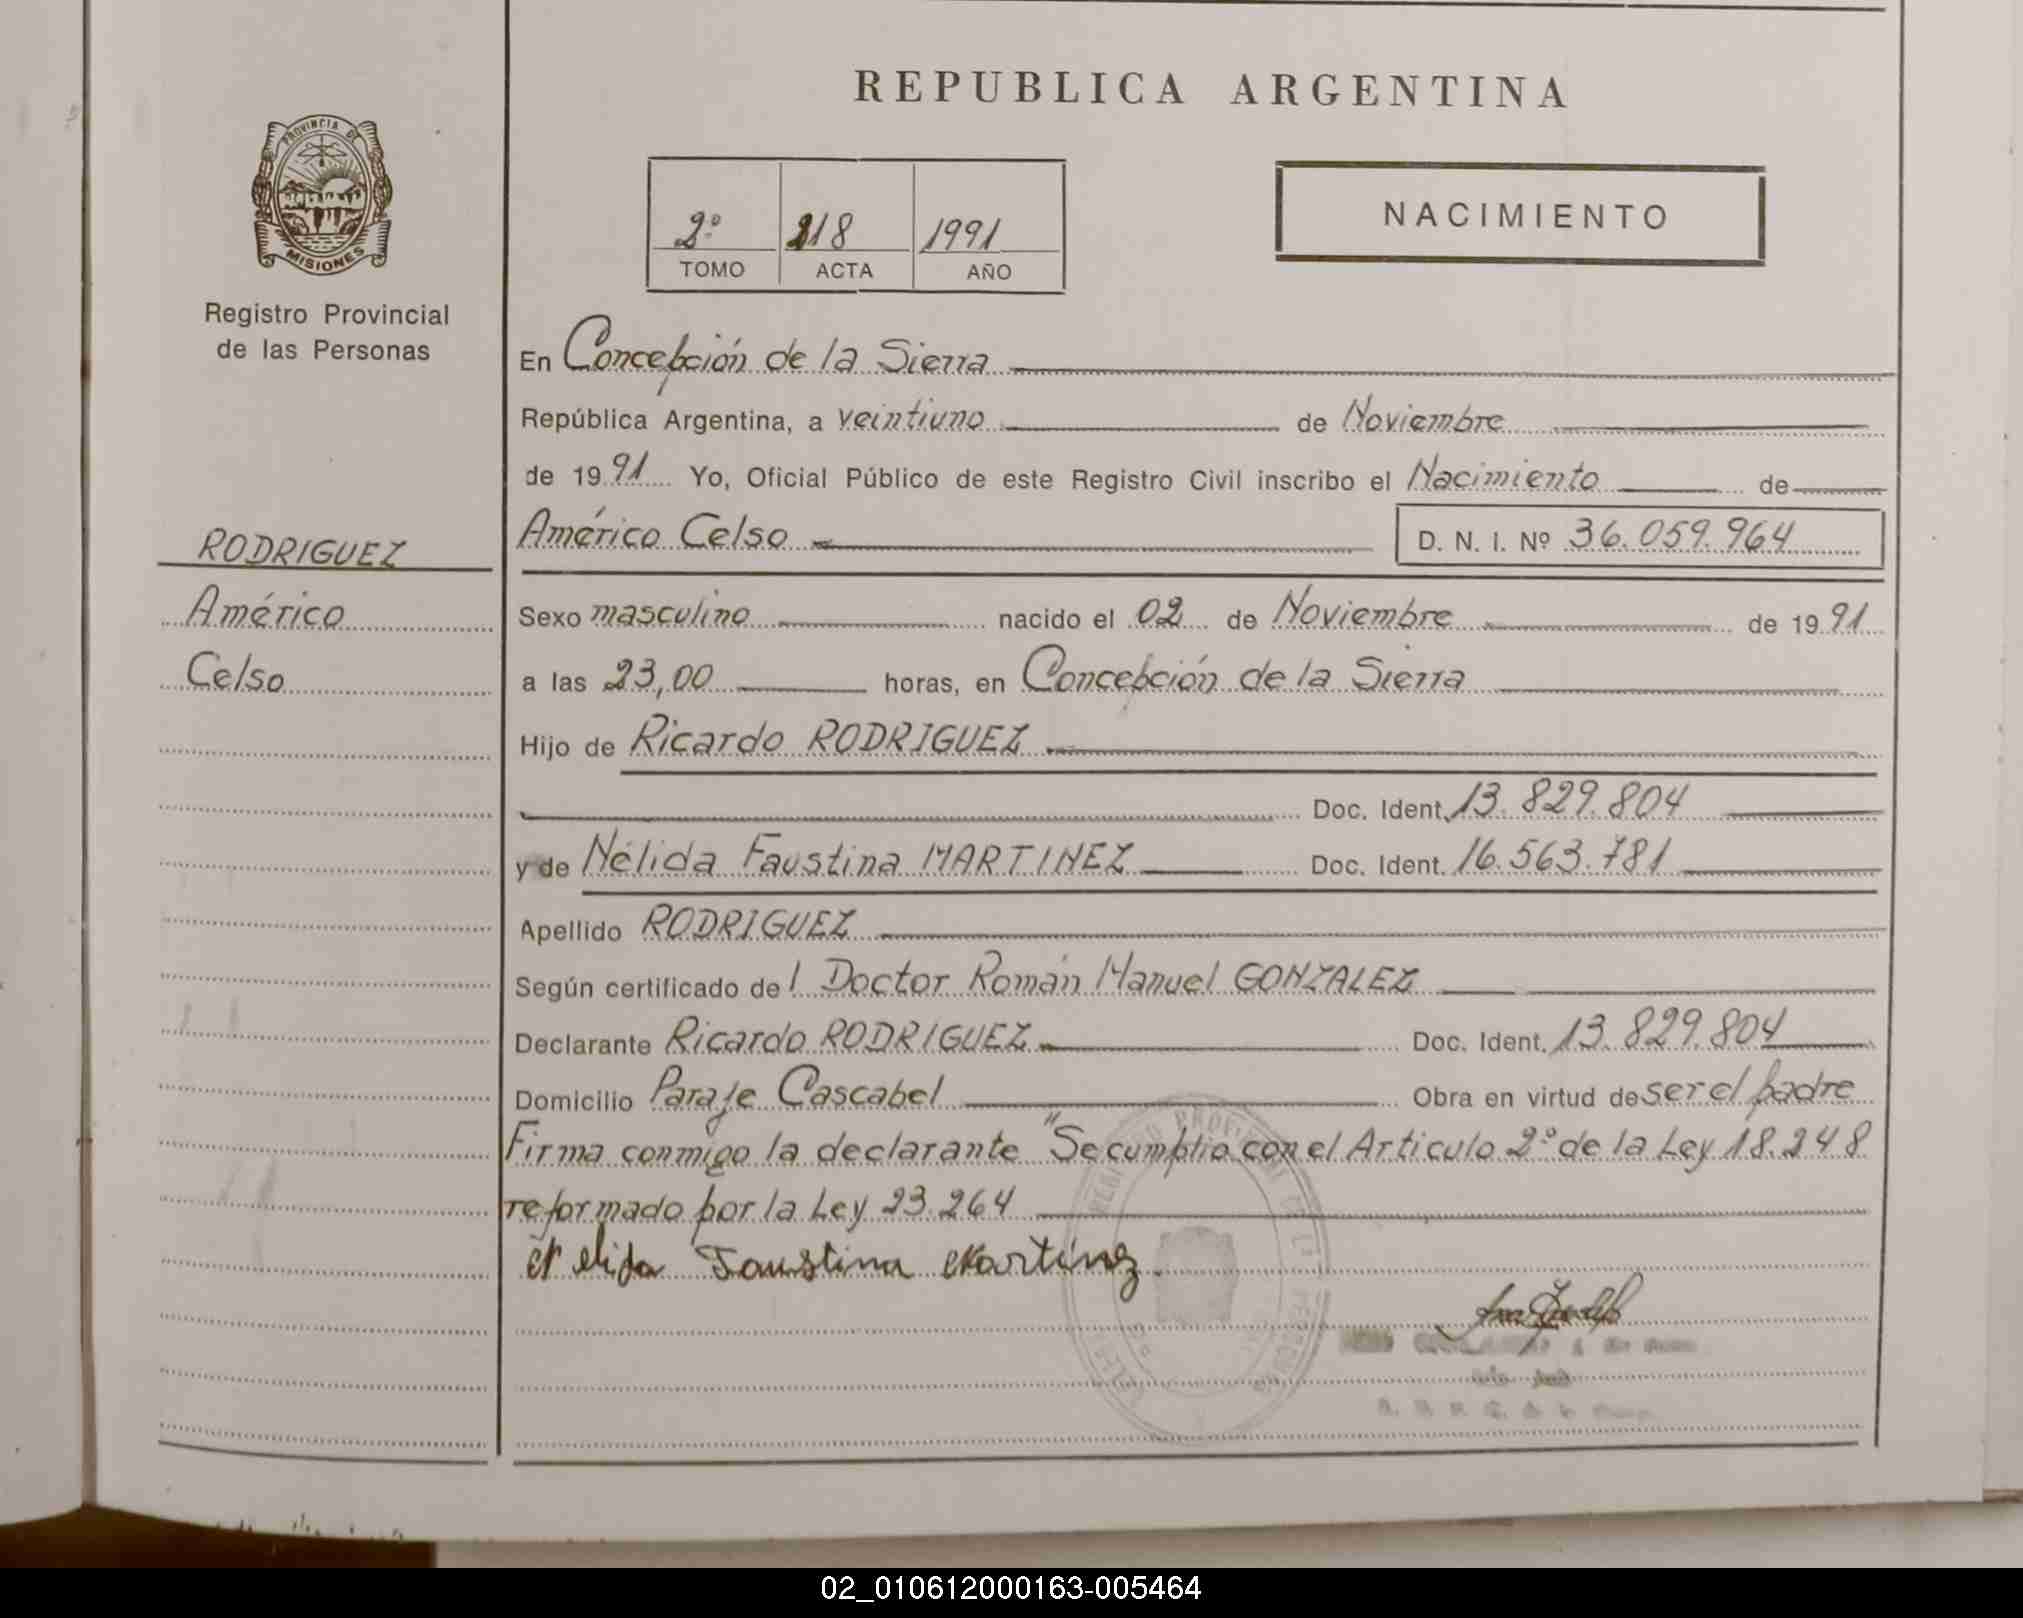 REPUBLICA ARGENTINA
PROVINCIA DE
MISIONES
Registro Provincial
de las Personas
2º 218 1991
TOMO ACTA AÑO
NACIMIENTO
En Concepción de la Sierra
República Argentina, a veintiuno de Noviembre
de 1991 Yo, Oficial Público de este Registro Civil inscribo el Nacimiento de
Américo Celso D. N. I. Nº 36.059.964
RODRIGUEZ
Américo
Celso
Sexo masculino nacido el 02 de Noviembre de 1991
a las 23,00 horas, en Concepción de la Sierra
Hijo de Ricardo RODRIGUEZ
Doc. Ident. 13.829.804
y de Nélida Faustina MARTINEZ Doc. Ident. 16.563.781
Apellido RODRIGUEZ
Según certificado del Doctor Román Manuel GONZALEZ
Declarante Ricardo RODRIGUEZ Doc. Ident. 13.829.804
Domicilio Paraje Cascabel Obra en virtud de ser el padre
Firma conmigo la declarante "Se cumplio con el Articulo 2º de la Ley 18.248
reformado por la Ley 23.264
Nelida Faustina Martinez
02_010612000163-005464